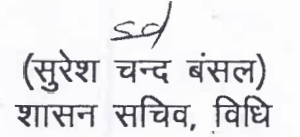 sd
(सुरेश चन्द बंसल)
शासन सचिव, विधि